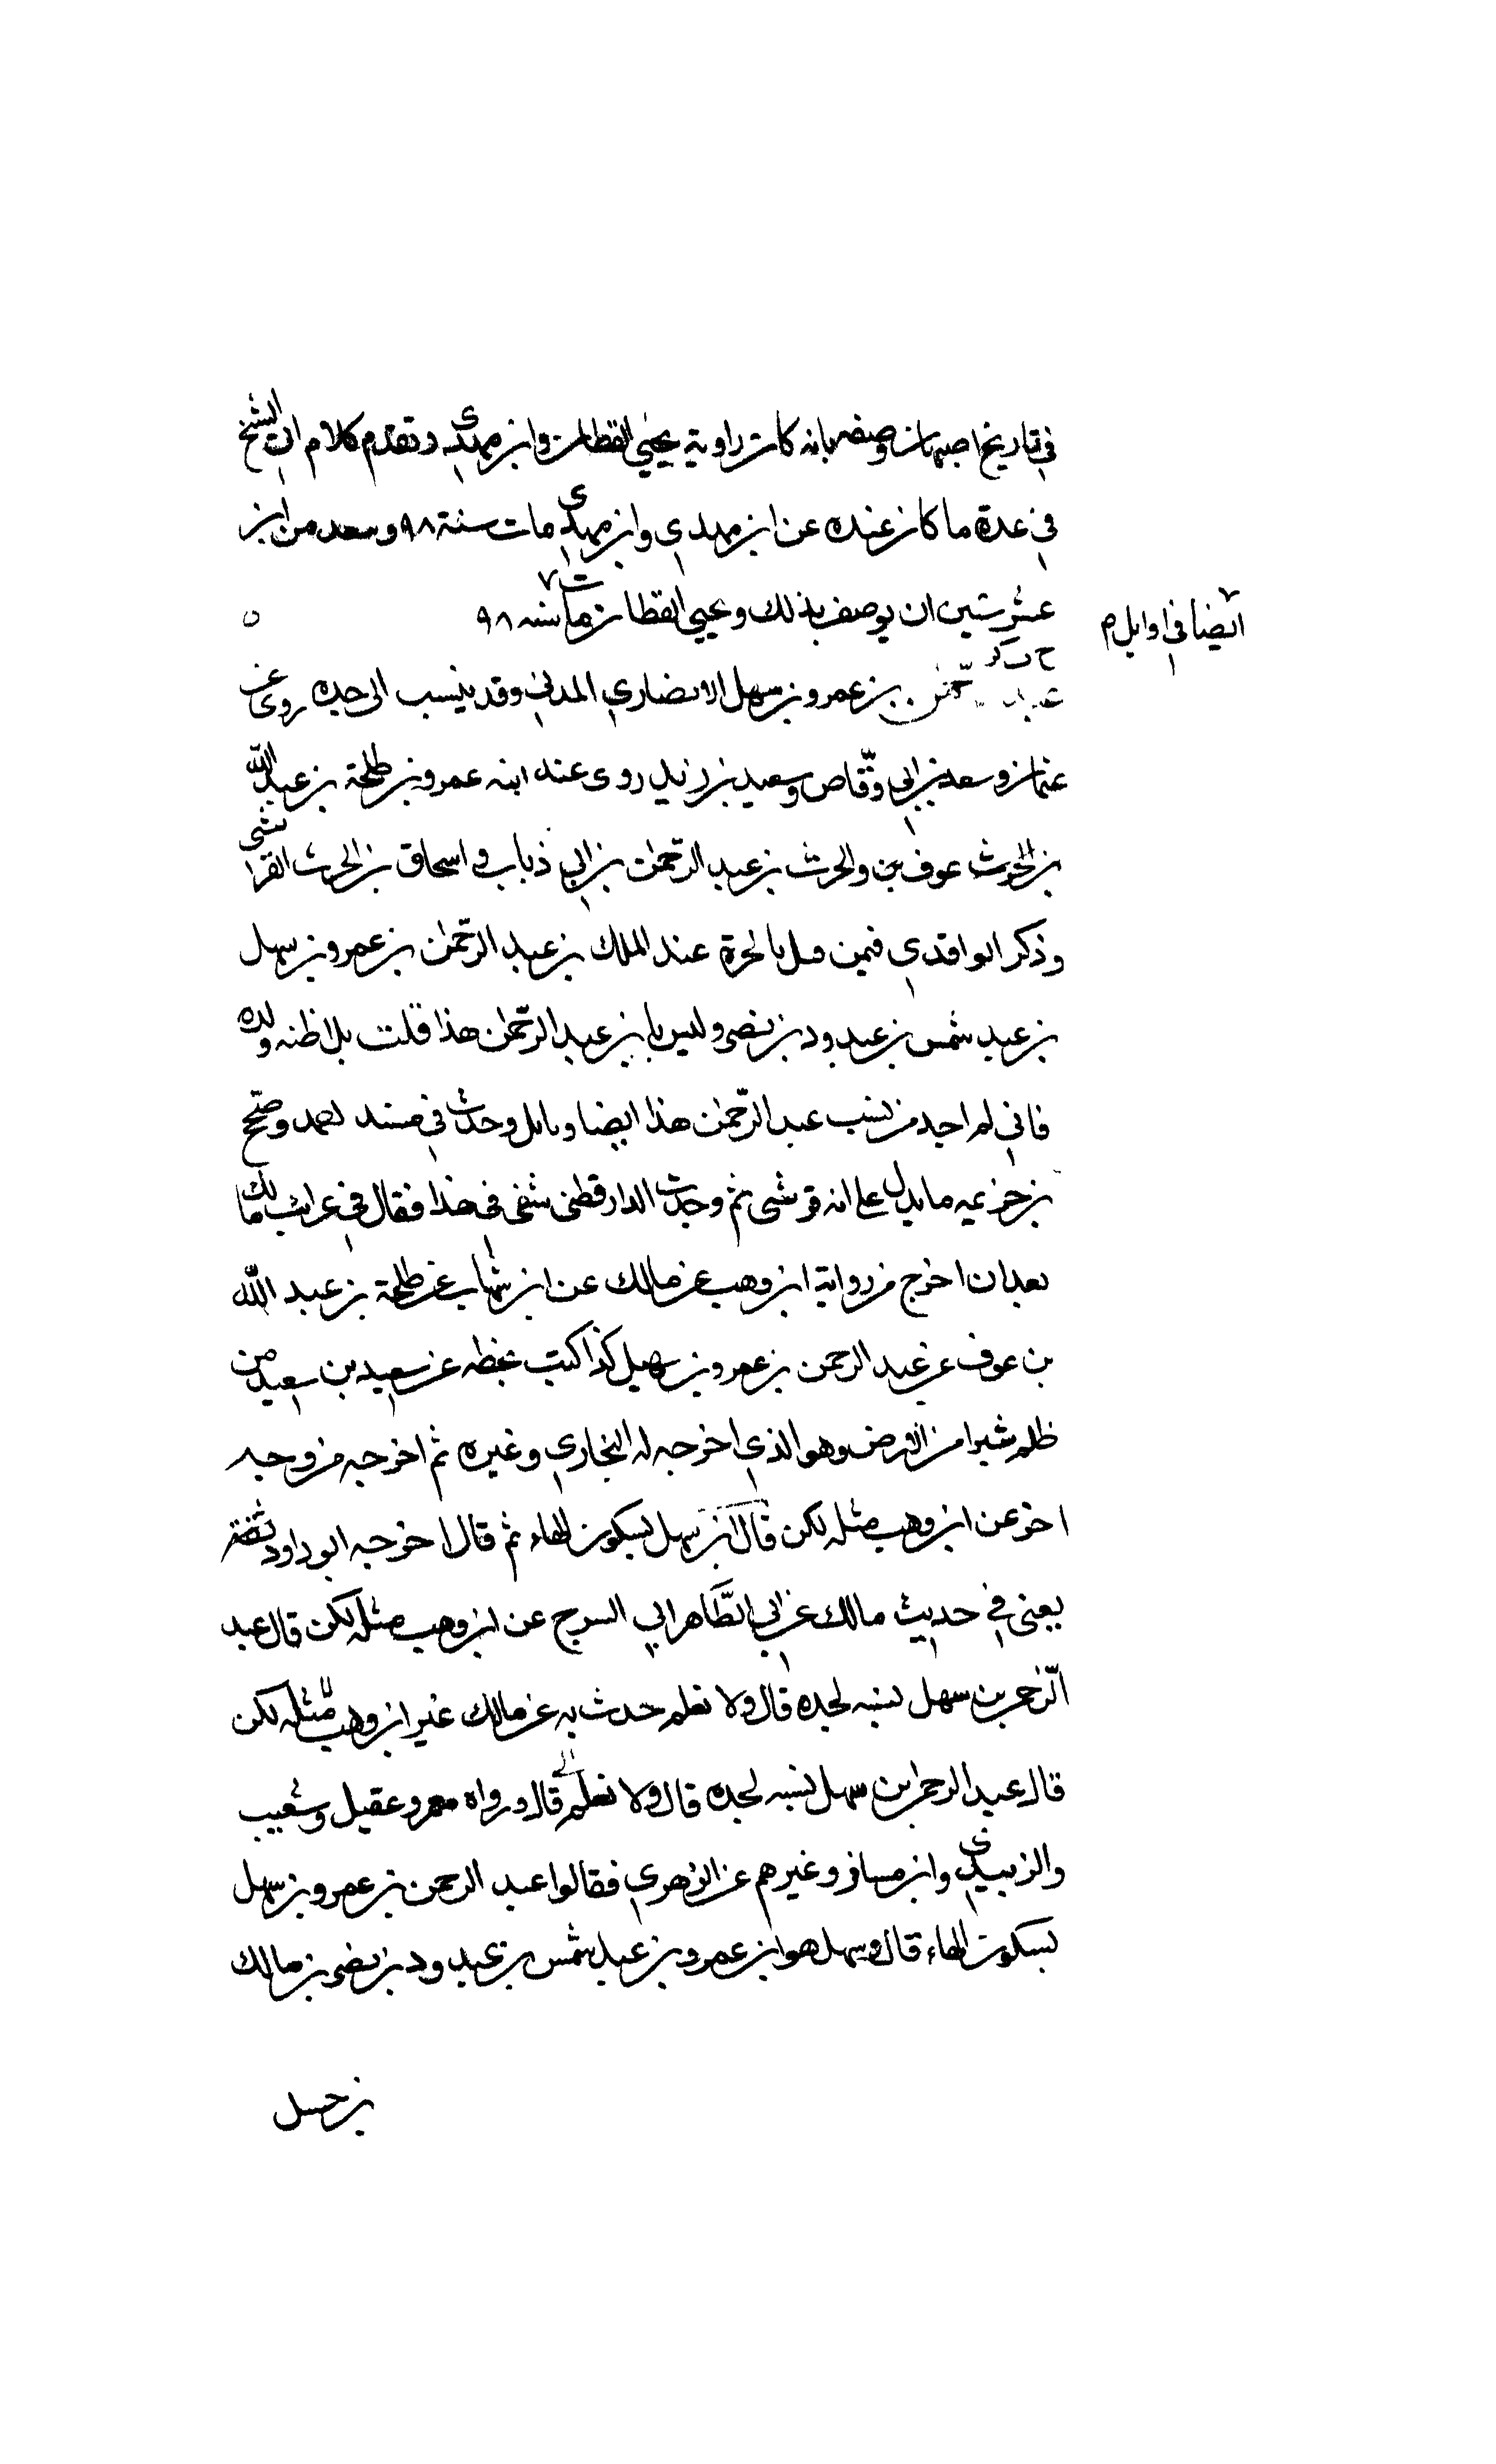 في تاريخ اصبهان وصفه بانه كان راوية يحيي القطان وابن مهدي وتقدم كلام ابي الشيخ
في عدة ما كان عنده عن ابن مهدي وابن مهدي مات سنة ٩٨ وسعد من ابن
عشر ستين ان يوصف بذلك ويحيي القطان مات سنه ٩٨
ايضا في اوايل م
عبد الرحمن بن عمرو بن سهل الانصاري المدني وقد ينسب الى جده روى عن
عثمان وسعد بن ابي وقّاص وسعيد بن زيد روى عنه ابنه عمرو بن طلحة بن عبد الله
بن الحرث عوف بن والحرث بن عبد الرحمن بن ابي ذباب واسحاق بن الحرث القرشي
وذكر الواقدي فيمن قتل بالحرة عبد الملك بن عبد الرحمن بن عمرو بن سهل
بن عبد شمس بن عبد ود بن نصر وليس بابن عبد الرحمن هذا قلت بل اظنه ولده
فاني لم اجد من نسب عبد الرحمن هذا ايضا وبابل وجدت في مسند احمد وصحيح
بن خزيمه ما يدل على انه قرشى ثم وجدت الدارقطنى شفى في هذا فقال في غرائب مالك
بعد ان اخرج من رواية ابن وهب عن مالك عن ابن شهاب عن طلحة بن عبد الله
بن عوف عن عبد الرحمن بن عمرو بن سهيل كذا كتب بخطه عن سعيد بن سعيد من
ظلم شبرا من الارض وهو الذي اخرجه له البخاري وغيره ثم اخرجه من وجه
اخر عن ابن وهب مثله لكن قال ابن سهل بسكون الهاء ثم قال اخرجه ابو داود
يعنى في حديث مالك عن ابي الطّاهر ابي السرح عن ابن وهب مثله لكن قال عبد
الرّحمن بن سهل نسبه لجده قال ولا نعلم حدث به عن مالك غير ابن وهب مثله لكن
قال عبد الرحمن بن سهل نسبه لجده قال ولا نعلم الى قال ورواه معمر وعقيل وشعيب
والزبيدي وابن مسافر وغيرهم عن الزهري فقالوا عبد الرحمن بن عمرو بن سهل
بسكون الهاء قال وسهل هو ابن عمرو بن عبد شمس بن عبد ود بن نصر بن مالك
بن حسل